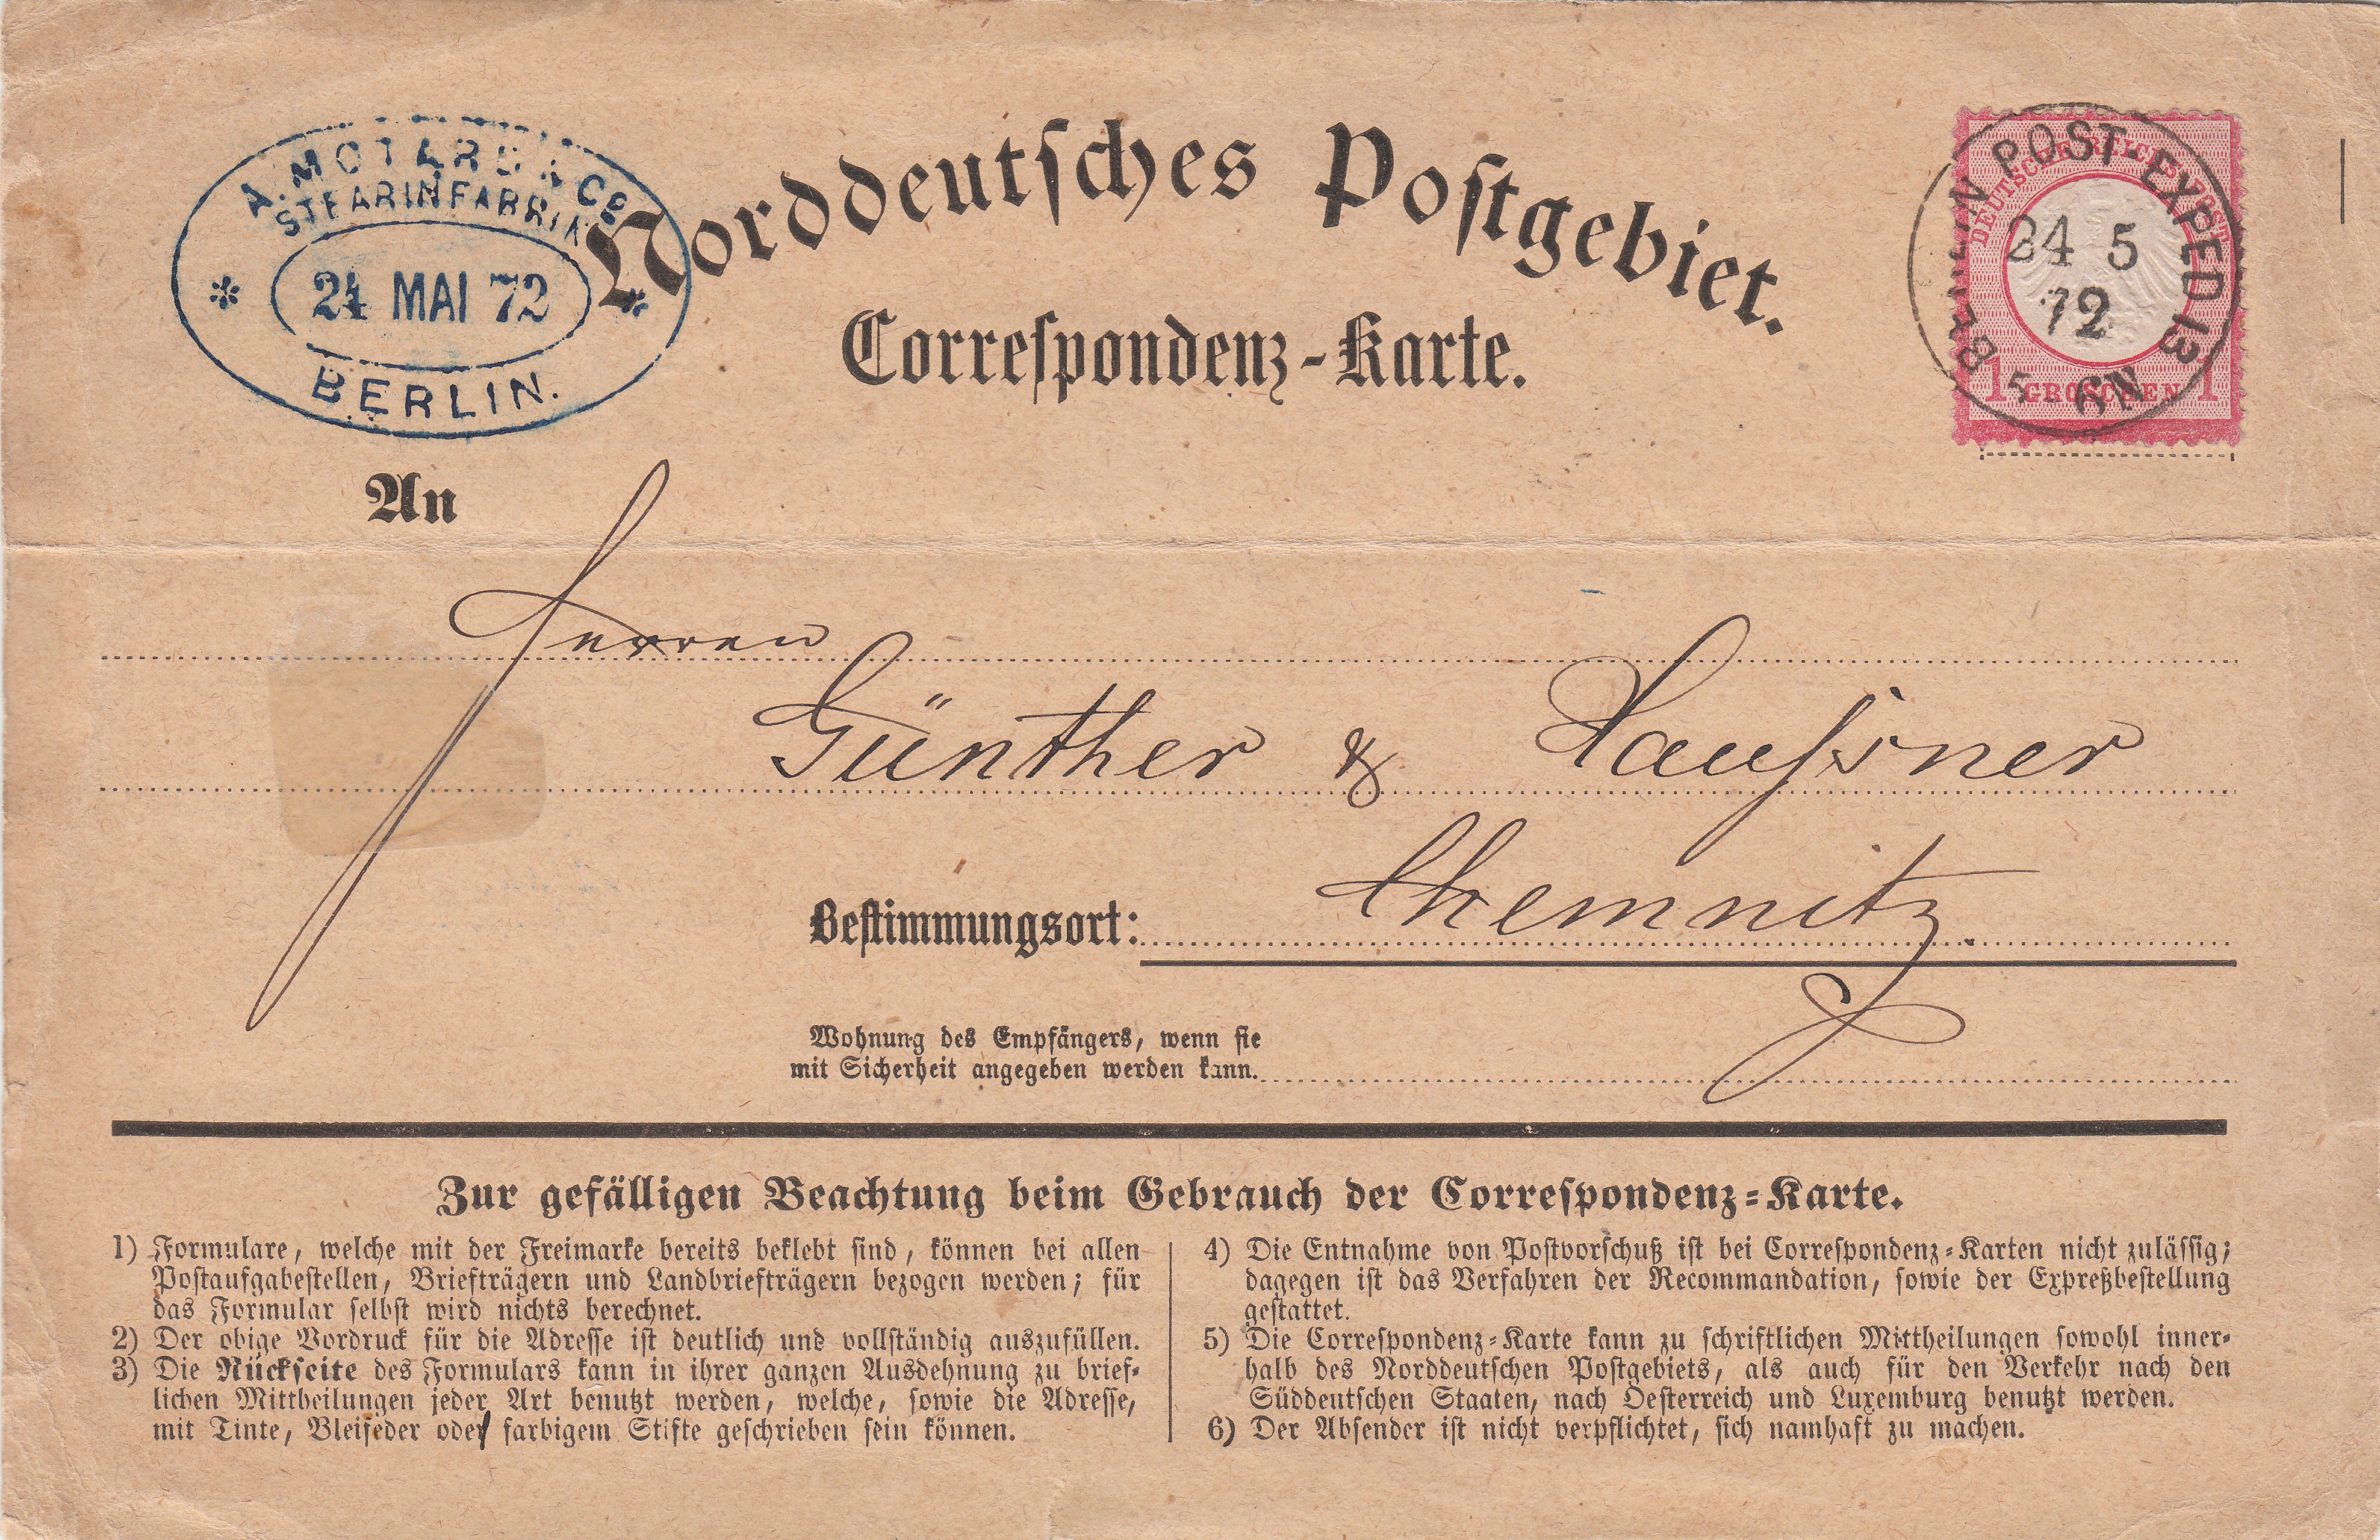 A. MOTARD & Co
STEARINFABRIK
24 MAI 72
BERLIN.
Norddeutſches Poſtgebiet.
Correſpondenz-Karte.
DEUTSCHE REICHS-POST
1 GROSCHEN 1
BERLIN POST-EXPED 13
24 5
72
5 6N
An
Herren
Günther &
Chemnitz.
Beſtimmungsort:
Wohnung des Empfängers, wenn ſie
mit Sicherheit angegeben werden kann.
Zur gefälligen Beachtung beim Gebrauch der Correſpondenz-Karte.
1) Formulare, welche mit der Freimarke bereits beklebt ſind, können bei allen
Poſtaufgabeſtellen, Briefträgern und Landbriefträgern bezogen werden; für
das Formular ſelbſt wird nichts berechnet.
2) Der obige Vordruck für die Adreſſe iſt deutlich und vollſtändig auszufüllen.
3) Die Rückſeite des Formulars kann in ihrer ganzen Ausdehnung zu brief-
lichen Mittheilungen jeder Art benutzt werden, welche, ſowie die Adreſſe,
mit Tinte, Bleifeder oder farbigem Stifte geſchrieben ſein können.
4) Die Entnahme von Poſtvorſchuß iſt bei Correſpondenz-Karten nicht zuläſſig;
dagegen iſt das Verfahren der Recommandation, ſowie der Expreßbeſtellung
geſtattet.
5) Die Correſpondenz-Karte kann zu ſchriftlichen Mittheilungen ſowohl inner-
halb des Norddeutſchen Poſtgebiets, als auch für den Verkehr nach den
Süddeutſchen Staaten, nach Oeſterreich und Luxemburg benutzt werden.
6) Der Abſender iſt nicht verpflichtet, ſich namhaft zu machen.